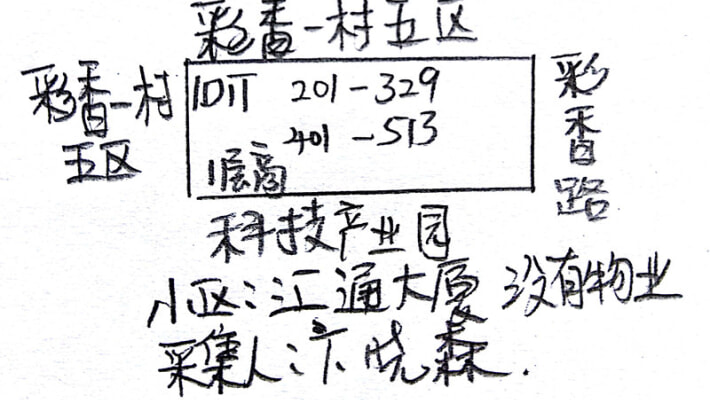 彩香一村五区
彩香一村
五区
1D11 201-329
401-513
1层商
彩香路
科技产业园
小区:江通大厦 没有物业
采集人:卞晓森.